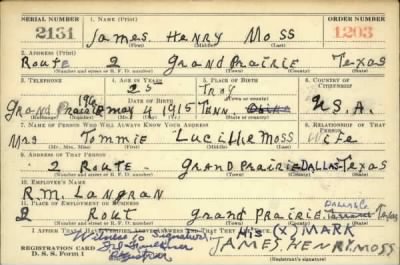 SERIAL NUMBER 1. NAME (Print) ORDER NUMBER
2131 James Henry Moss 1203
(First) (Middle) (Last)
2. ADDRESS (Print)
Route 2 Grand Prairie Texas
(Number and street or R. F. D. number) (Town) (County) (State)
3. TELEPHONE 4. AGE IN YEARS 5. PLACE OF BIRTH 6. COUNTRY OF CITIZENSHIP
25 Troy
DATE OF BIRTH
Grand Prairie May 4 1915 Tenn. U.S.A.
(Exchange) (Number) (Mo.) (Day) (Yr.) (State or country)
7. NAME OF PERSON WHO WILL ALWAYS KNOW YOUR ADDRESS 8. RELATIONSHIP OF THAT PERSON
Mrs Tommie Lucille Moss Wife
(Mr., Mrs., Miss) (First) (Middle) (Last)
9. ADDRESS OF THAT PERSON
2 Route - Grand Prairie-Dallas-Texas
(Number and street or R. F. D. number) (Town) (County) (State)
10. EMPLOYER'S NAME
R.M. Langran
11. PLACE OF EMPLOYMENT OR BUSINESS
2 Rout Grand Prairie Dallas Tarrant Texas
(Number and street or R. F. D. number) (Town) (County) (State)
I AFFIRM THAT I HAVE VERIFIED ABOVE ANSWERS AND THAT THEY ARE TRUE.
Witness to Signature His (X) MARK
Registrar JAMES HENRY MOSS
REGISTRATION CARD
D. S. S. Form 1 (Registrant's signature)